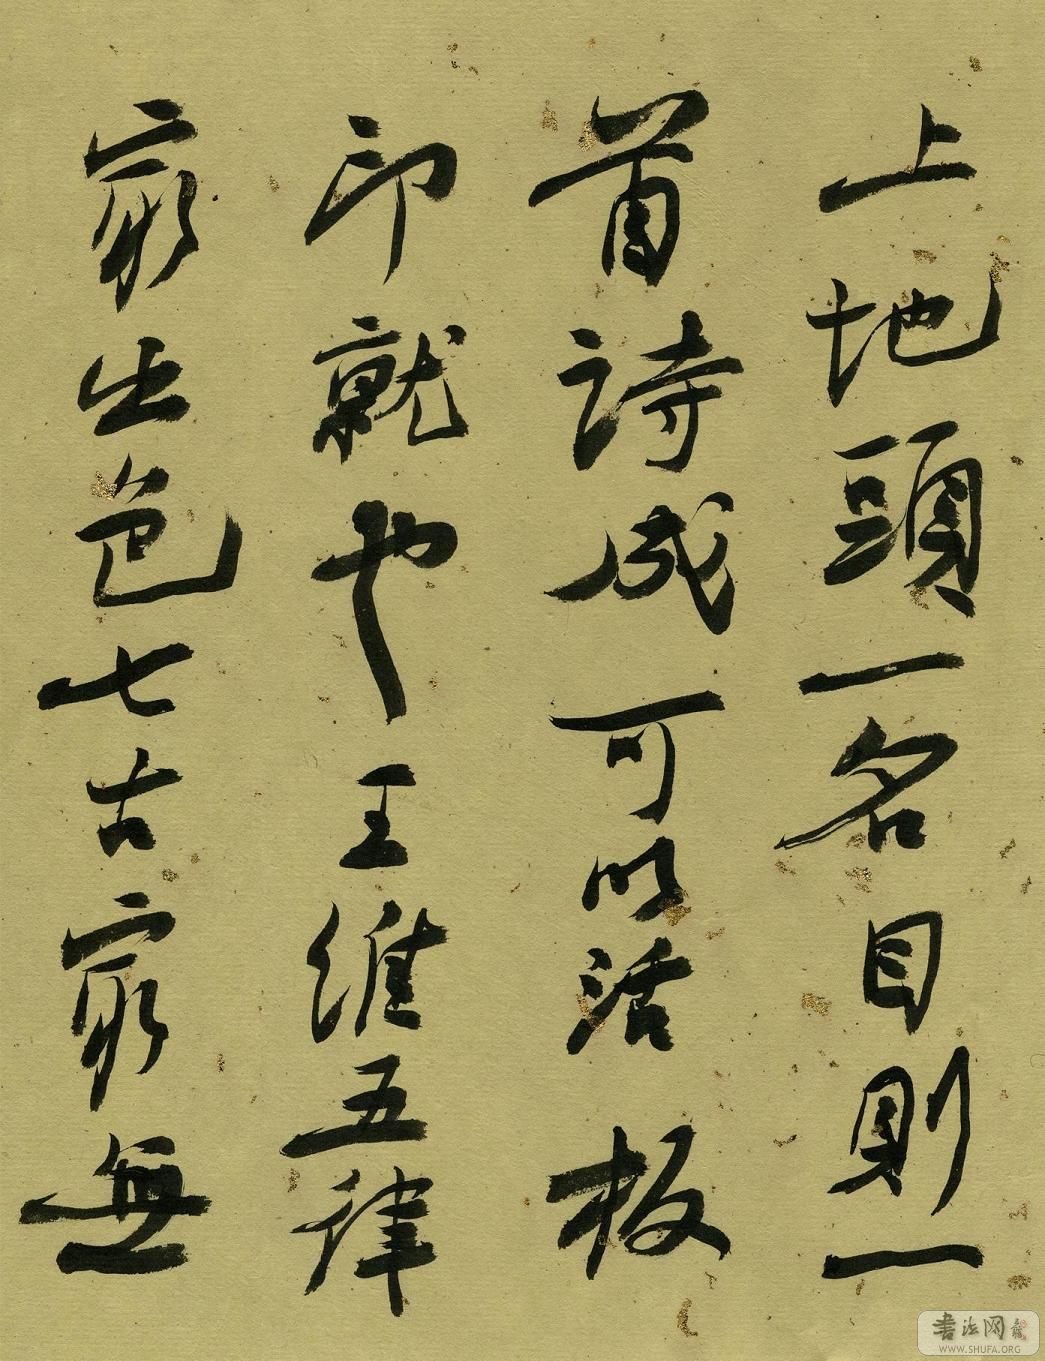 上地頭一名目則一
首詩成可以活板
印就也王維五律
寂出色七古寂無
書法网
WWW.SHUFA.ORG